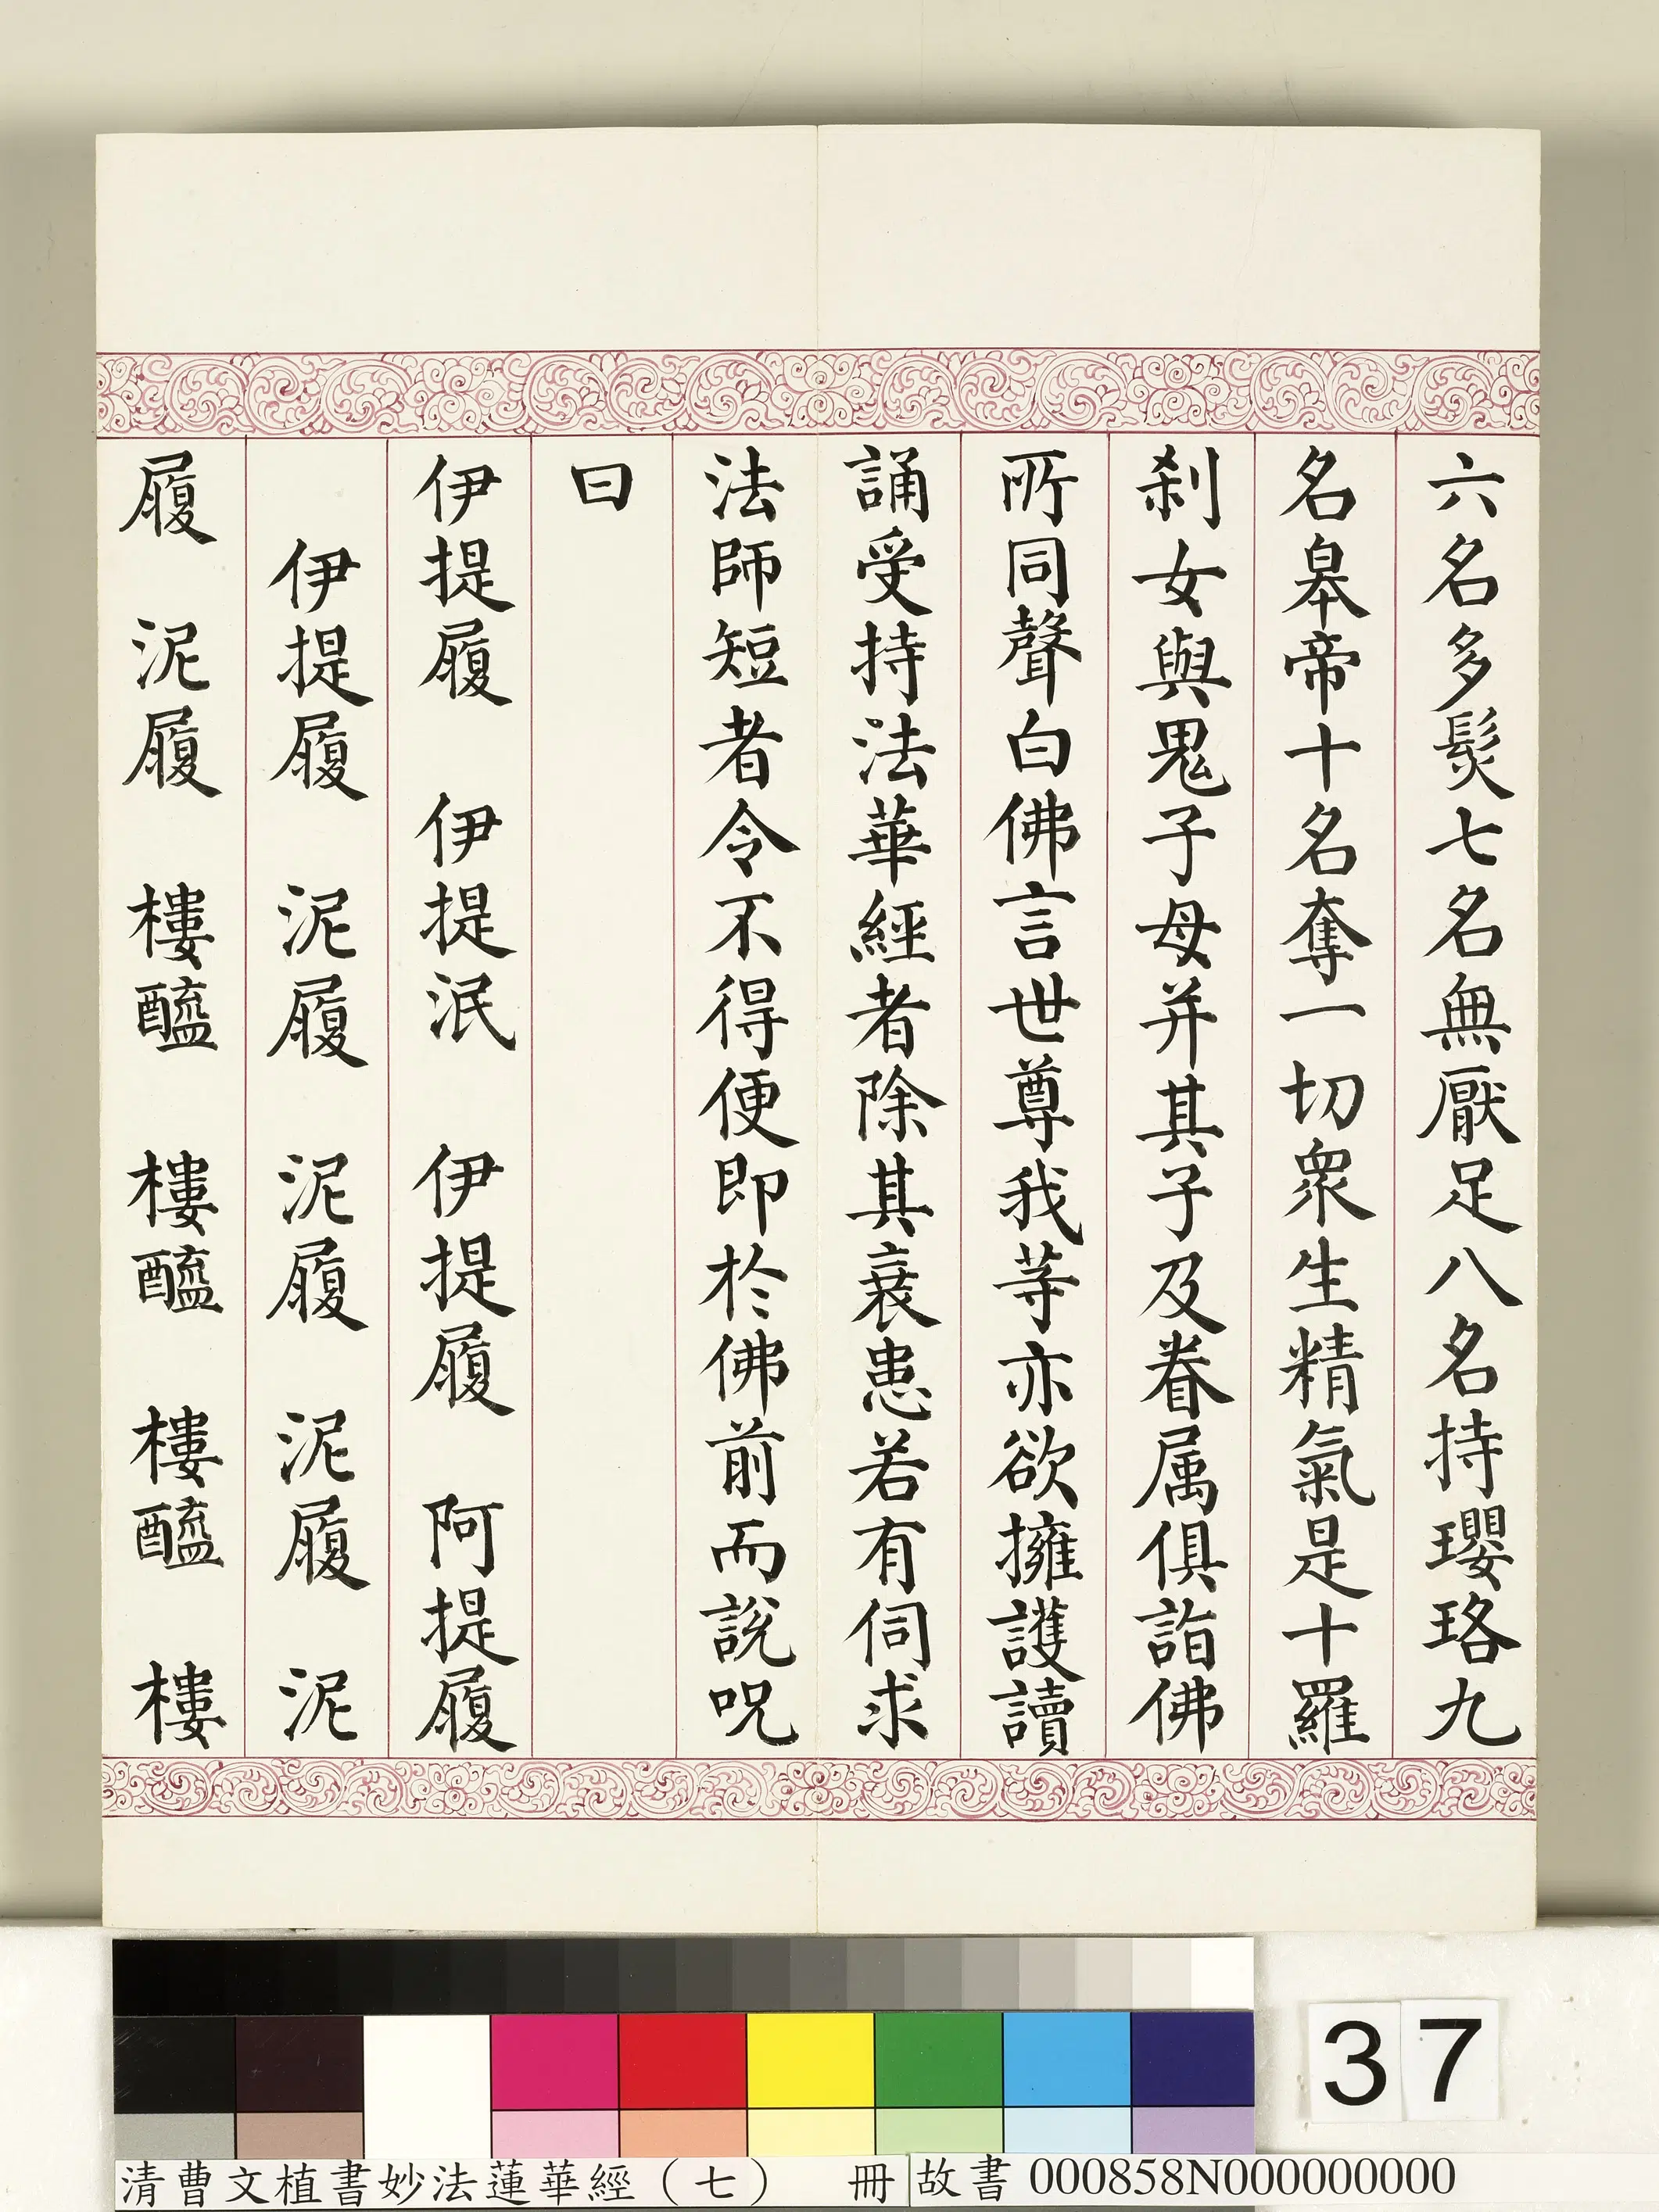 六名多髮七名無厭足八名持瓔珞九
名皋帝十名奪一切眾生精氣是十羅
刹女與鬼子母并其子及眷属俱詣佛
所同聲白佛言世尊我等亦欲擁護讀
誦受持法華經者除其衰患若有伺求
法師短者令不得便即於佛前而說呪
曰
伊提履　伊提泯　伊提履　阿提履
伊提履　泥履　泥履　泥履　泥
履　泥履　樓醯　樓醯　樓醯　樓
37
清曹文植書妙法蓮華經（七）　冊　故書 000858N000000000